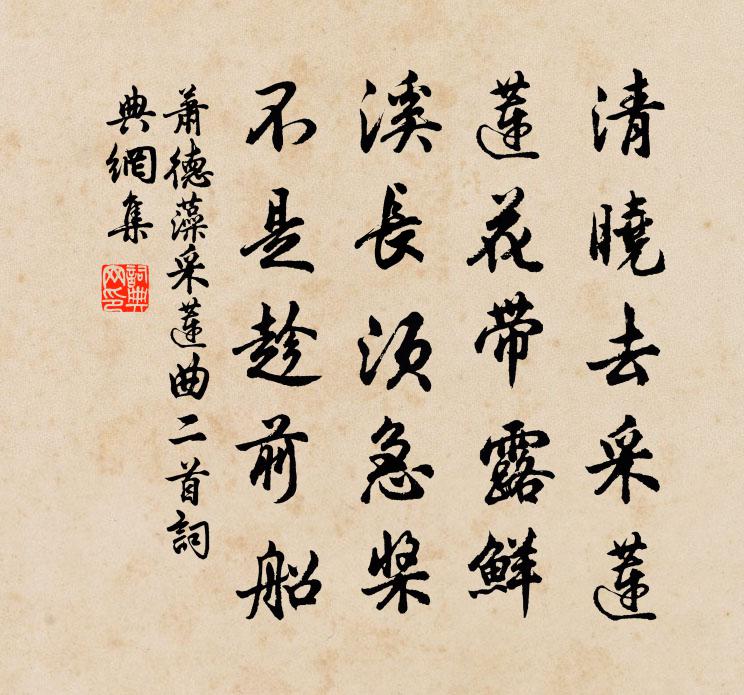 清曉去采蓮
蓮花带露鮮
溪長須急槳
不是趁前船
蕭德藻采蓮曲二首詞
典網集
詞典
网印